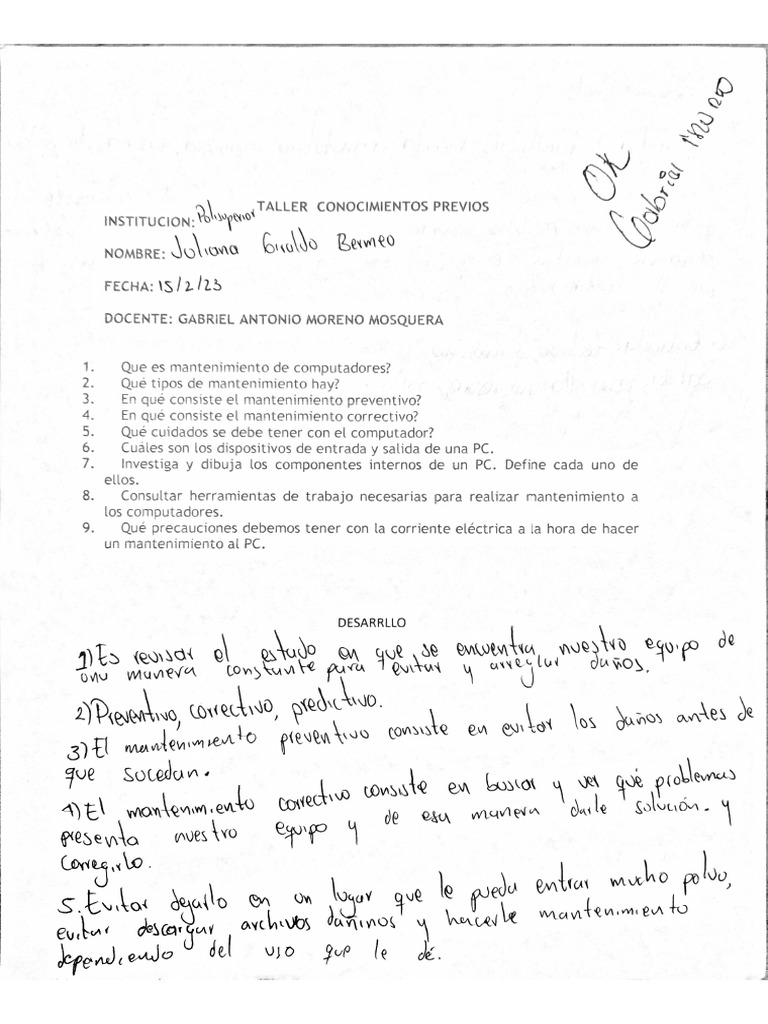 OK
Gabriel
TALLER CONOCIMIENTOS PREVIOS
INSTITUCION: Polisuperior
NOMBRE: Juliana Giraldo Bermeo
FECHA: 15/2/23
DOCENTE: GABRIEL ANTONIO MORENO MOSQUERA
1. Que es mantenimiento de computadores?
2. Qué tipos de mantenimiento hay?
3. En qué consiste el mantenimiento preventivo?
4. En qué consiste el mantenimiento correctivo?
5. Qué cuidados se debe tener con el computador?
6. Cuáles son los dispositivos de entrada y salida de una PC.
7. Investiga y dibuja los componentes internos de un PC. Define cada uno de
ellos.
8. Consultar herramientas de trabajo necesarias para realizar mantenimiento a
los computadores.
9. Qué precauciones debemos tener con la corriente eléctrica a la hora de hacer
un mantenimiento al PC.
DESARRLLO
1) Es revisar el estado en que se encuentra nuestro equipo de
una manera constante para evitar y arreglar daños.
2) Preventivo, correctivo, predictivo.
3) El mantenimiento preventivo consiste en evitar los daños antes de
que sucedan.
4) El mantenimiento correctivo consiste en buscar y ver qué problemas
presenta nuestro equipo y de esa manera darle solución. y
corregirlo.
5. Evitar dejarlo en un lugar que le pueda entrar mucho polvo,
evitar descargar archivos dañinos y hacerle mantenimiento
dependiendo del uso que le dé.